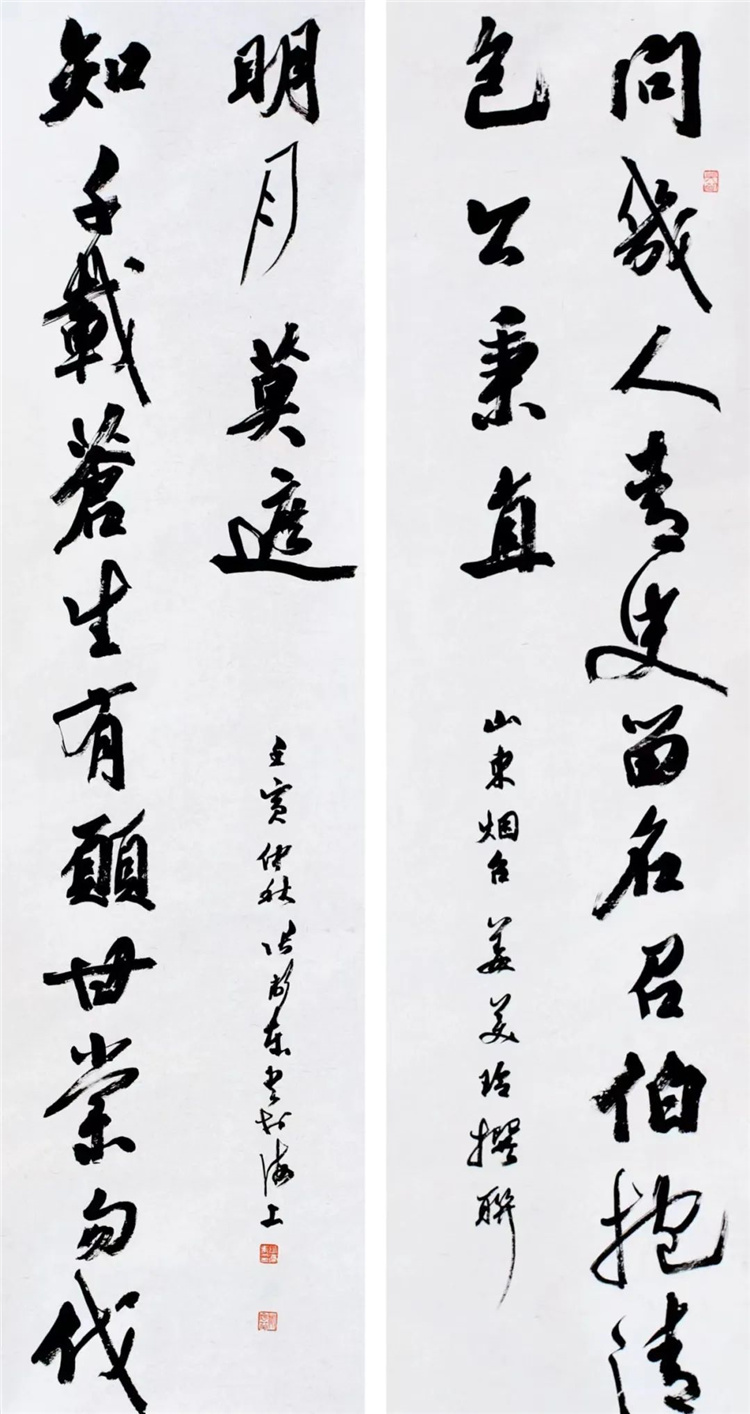 問幾人青史留名召伯抱清
包公秉直
山東烟台姜美玲撰聯
知千載蒼生有願甘棠勿伐
明月莫遮
壬寅仲秋張尚東書於海上